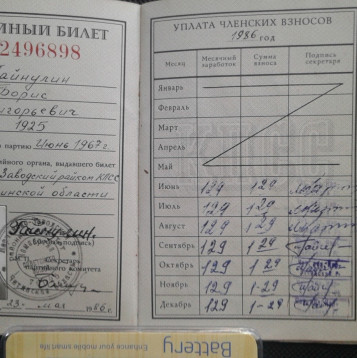 ЙНЫЙ БИЛЕТ
2496898
Борис
игорьевич
1925
партию Июнь 1967 г.
йного органа, выдавшего билет
Заводский райком КПСС
инской области
(личная подпись)
Секретарь
партийного комитета
мая 1986 г.
УПЛАТА ЧЛЕНСКИХ ВЗНОСОВ
1986 год
Месяц Месячный заработок Сумма взноса Подпись секретаря
Январь
Февраль
Март
Апрель
Май
Июнь 129 1-29
Июль 129 1-29
Август 129 1-29
Сентябрь 129 1-29
Октябрь 129 1-29
Ноябрь 129 1-29
Декабрь 129 1-29
Battery
Enhance your mobile smart life